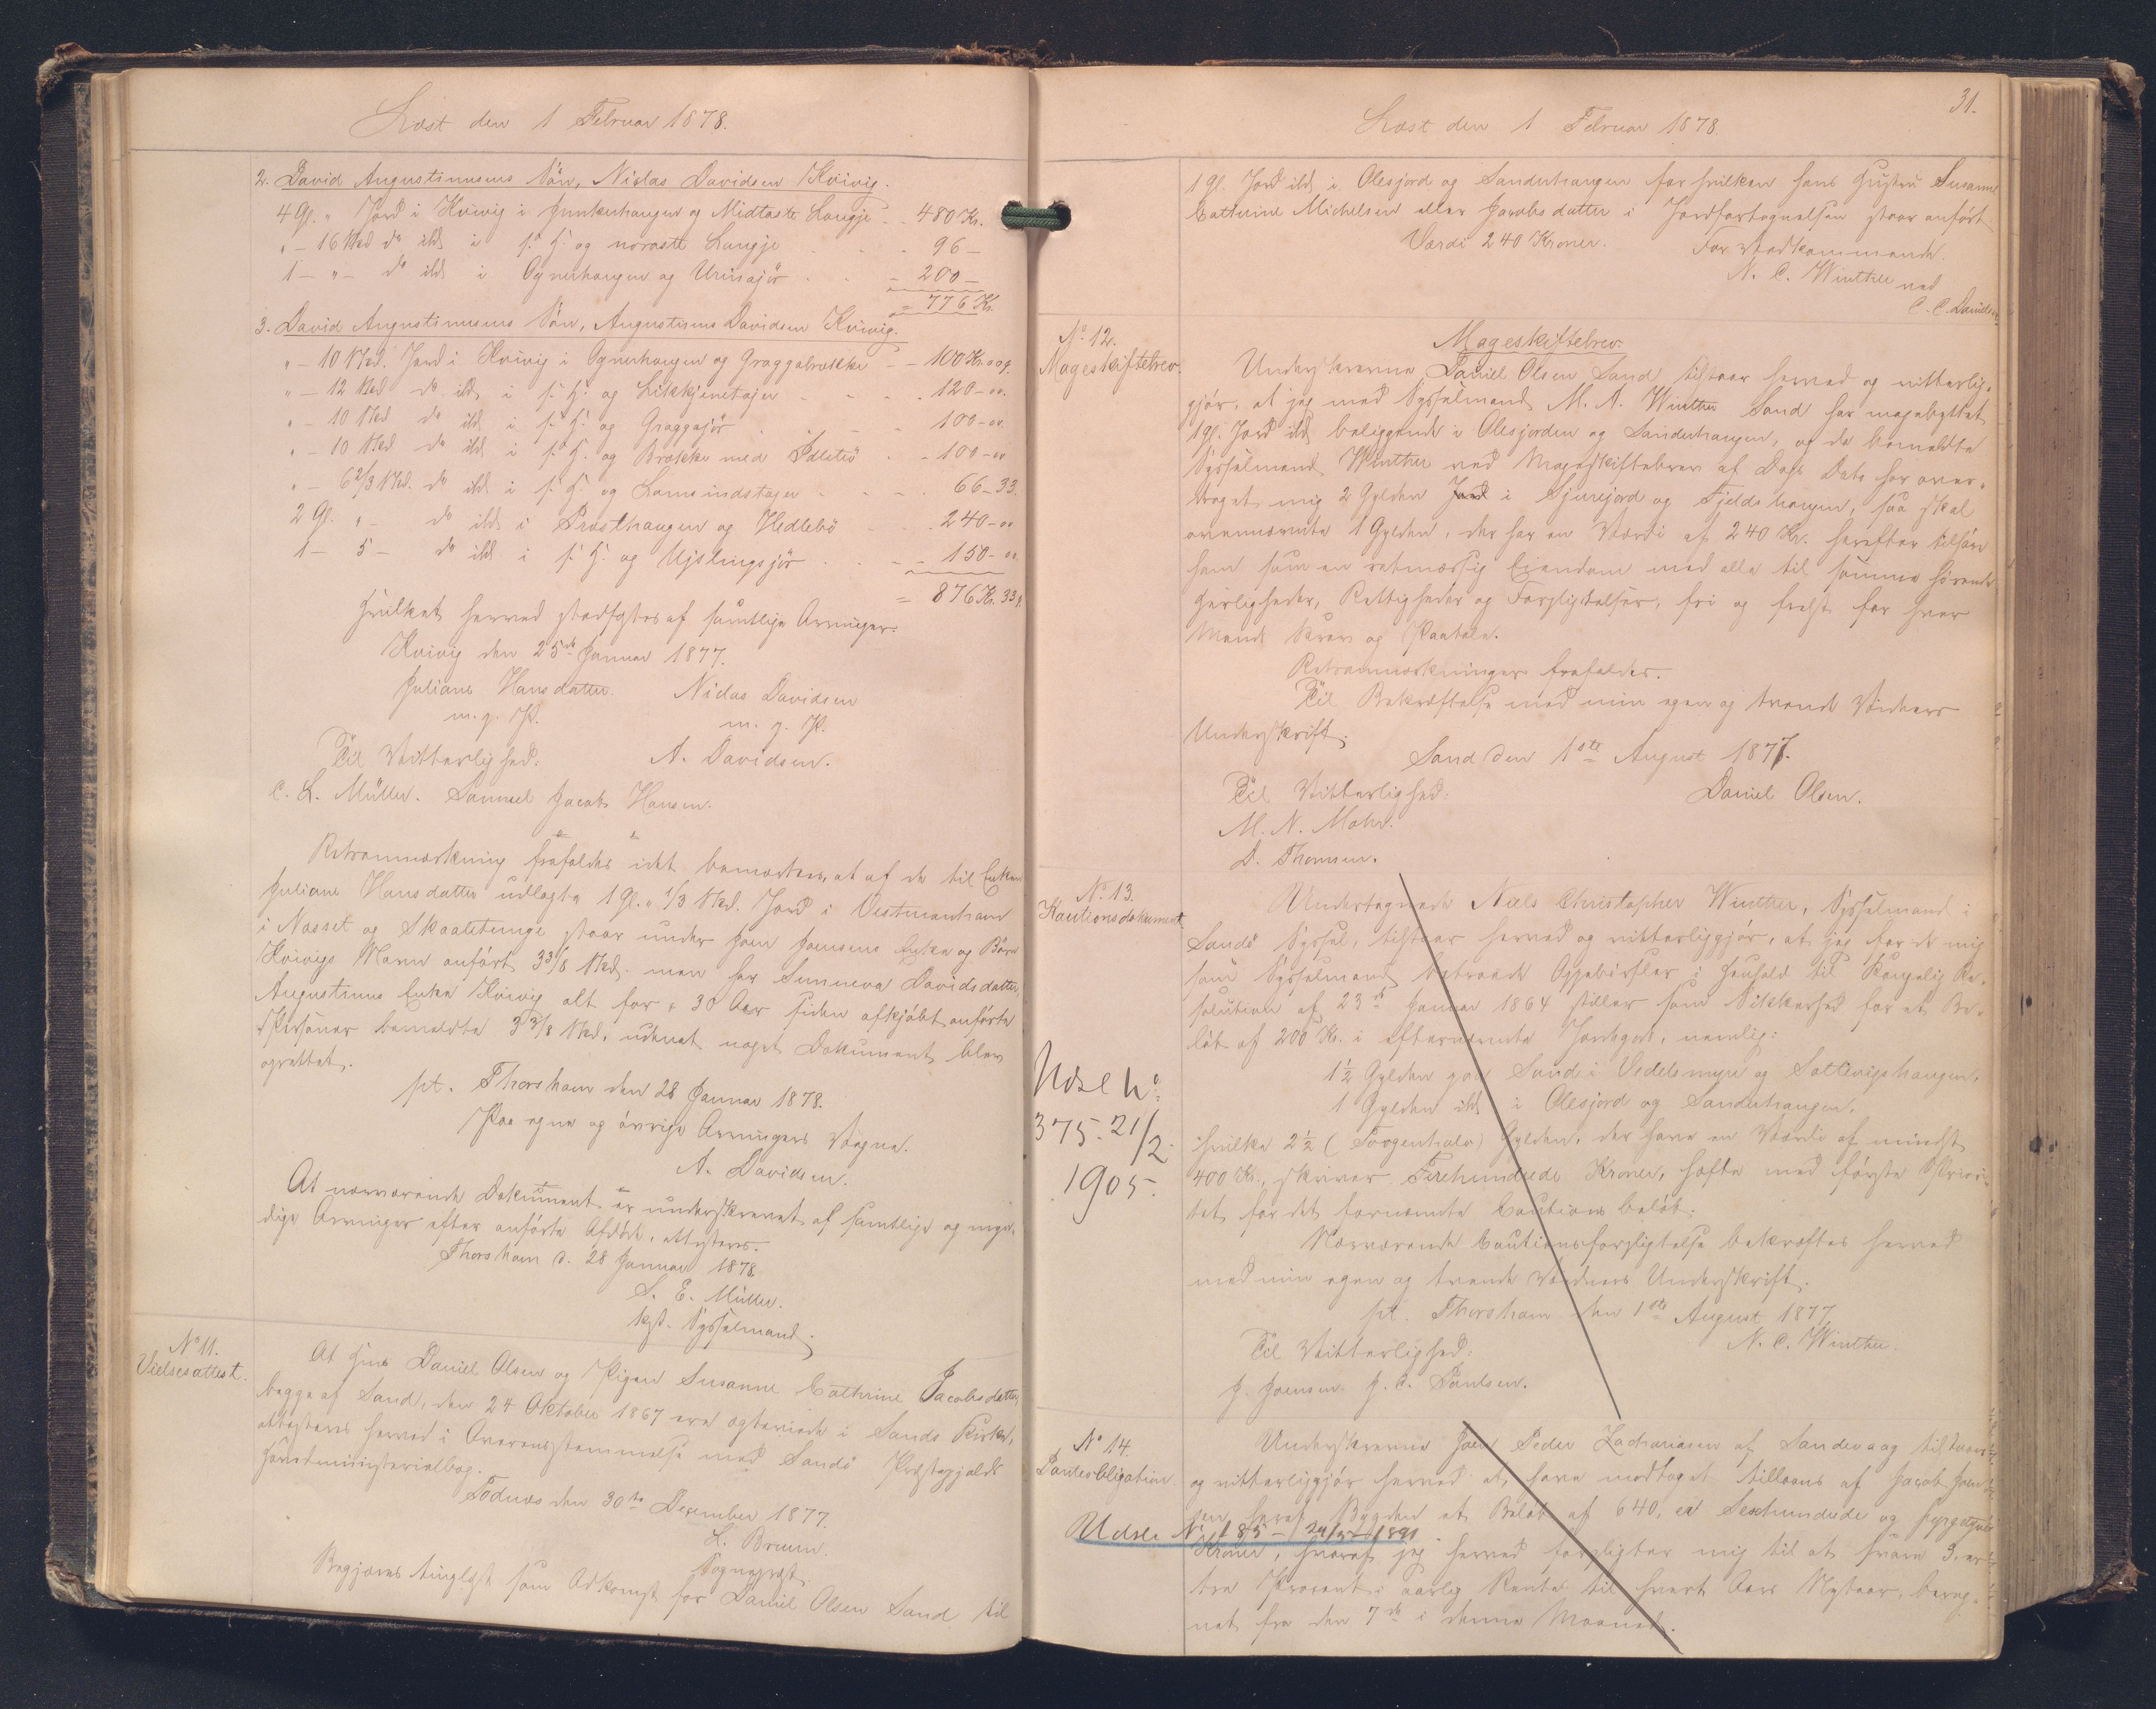 Læst den 1 Februar 1878.
2. David Augustinusens Sön, Niclas Davidsen Kvivig.
4 Gl. " Jord i Kvivig i Junkenhaugen og Midtaste Laugje - - 480 Kr.
" - 16 Skd do ibd i s. H. og noraste Laugje - - 96 -
1 - " - do ibd i Ognerhaugen og Uriisajör - - 200 -
= 776 Kr.
3. David Augustinusens Sön, Augustinus Davidsen Kvivig.
" - 10 Skd. Jord i Kvivig i Ognerhaugen og Graggabrække - - 100 Kr. 00 ø.
" - 12 Skd do ibd i s. H. og Likkjenetajen - - 120 - 00.
" - 10 Skd do ibd i s. H. og Graggajör - - 100 - 00.
" - 10 Skd do ibd i s. H. og Brække med - - 100 - 00
" - 6 2/3 Skd. do ibd i s. H. og - - 66 - 33.
2 Gl. " - do ibd i Præsthaugen og Hedlebö - - 240 - 00
1 - 5 - do ibd i s. H. og Ujslingsjör - - 150 - 00.
= 876 Kr. 33 ø.
Hvilket herved stadfæstes af samtlige Arvinger.
Kvivig den 25de Januar 1877.
Juliane Hansdatter. Niclas Davidsen
m. g. P. m. g. P.
Til Vitterlighed: A. Davidsen.
C. L. Müller. Samuel Jacob Hansen.
Retranmærkning frafaldes idet bemærkes, at af de til Enken
Juliane Hansdatter udlagte 1 Gl. " 1/3 Skd. Jord i Vestmanhavn
i Næsset og Skaaletunge staar under Joen Joensens Enke og Börn
Kvivigs Navn anført 3 3/8 Skd. men har Sunneva Davidsdatter,
Augustinus Enke Kvivig alt for c 30 Aar siden afkjöbt anförte
Personer bemeldte 3 3/8 Skd. uden at noget Dokument blev
oprettet.
pt. Thorshavn den 28 Januar 1878.
Paa egne og övrige Arvingers Vegne.
A. Davidsen.
At nærværende Dokument er underskrevet af samtlige og myn-
dige Arvinger efter anførte Afdöde, attesteres.
Thorshavn d. 28 Januar 1878.
S. E. Müller.
kgst. Sysselmand.
No 11.
Vielsesattest.
At Daniel Olsen og Pigen Susanne Cathrine Jacobsdatter,
begge af Sand, den 24 Oktober 1867 ere ægteviede i Sands Kirke,
attesteres herved i Overensstemmelse med Sandö Præstegjælds
Hovedministerialbog.
Todnæs den 30te December 1877.
L. Bruun.
Sognepræst.
Begjæres tinglæst som Adkomst for Daniel Olsen Sand til
31.
Læst den 1 Februar 1878.
1 Gl. Jord ibd i Olesjord og Sanderhaugen for hvilken hans Hustru Susanne
Cathrine Michelsen eller Jacobsdatter i Jordfortegnelsen staar anfört.
Værdi 240 Kroner. For Vedkommende.
N. C. Winther ved
C. C. Danielsen
No 12.
Mageskiftebrev.
Mageskiftebrev.
Underskrevne Daniel Olsen Sand tilstaar herved og vitterlig-
gjör, at jeg med Sysselmand N. C. Winther Sand har magebyttet
1 Gl. Jord ibd beliggende i Olesjorden og Sanderhaugen, og da bemeldte
Sysselmand Winther ved Mageskiftebrev af Dags Dato har over-
draget mig 2 Gylden Jord i Sjurejord og Fjeldshaugen, saa skal
ovennævnte 1 Gylden, der har en Værdi af 240 Kr. herefter tilhöre
ham som en retmæssig Eiendom med alle til samme hörende
Herligheder, Rettigheder og Forpligtelser, fri og frelst for hver
Mands Krav og Paatale.
Retranmærkninger frafaldes.
Til Bekræftelse med min egen og tvende Vidners
Underskrift.
Sand den 1ste August 1877.
Til Vitterlighed: Daniel Olsen.
M. N. Mohr.
D. Thomsen.
No 13.
Kautionsdokument
Undertegnede Niels Christopher Winther, Sysselmand i
Sandö Syssel, tilstaar herved og vitterliggjör, at jeg for de mig
som Sysselmand betroede Oppebörsler i Henhold til Kongelig Re-
solution af 23de Januar 1864 stiller som Sikkerhed for et Be-
löb af 200 Kr. i efternævnte Jordegods, nemlig:
1 1/2 Gylden paa Sand i Vedelsmyre og Saltevigshaugen,
1 Gylden ibd i Olesjord og Sanderhaugen,
hvilke 2 1/2 (Toogenhalv) Gylden, der have en Værdi af mindst
400 Kr., skriver Firehundrede Kroner, hæfte med förste Priori-
tet for det fornævnte Cautions belöb.
Nærværende Cautionsforpligtelse bekræftes herved
med min egen og tvende Vidners Underskrift.
pt. Thorshavn den 1ste August 1877.
Til Vitterlighed: N. C. Winther.
J. Joensen. J. C. Poulsen.
Udsl No:
375. 21/2
1905.
No 14.
Panteobligation
Underskrevne Joen Peder Zachariasen af Sandevaag tilstaar
og vitterliggjör herved at have modtaget tillaans af Jacob Joen-
sen her af Bygden et Belöb af 640, er Sexhundrede og fyrgetyve
Kroner, hvoraf jeg herved forpligter mig til at svare 3, er
tre Procent i aarlig Rente til hvert Aars Nytaar, bereg-
net fra den 7de i denne Maaned.
Udsl. No 185 - 1891